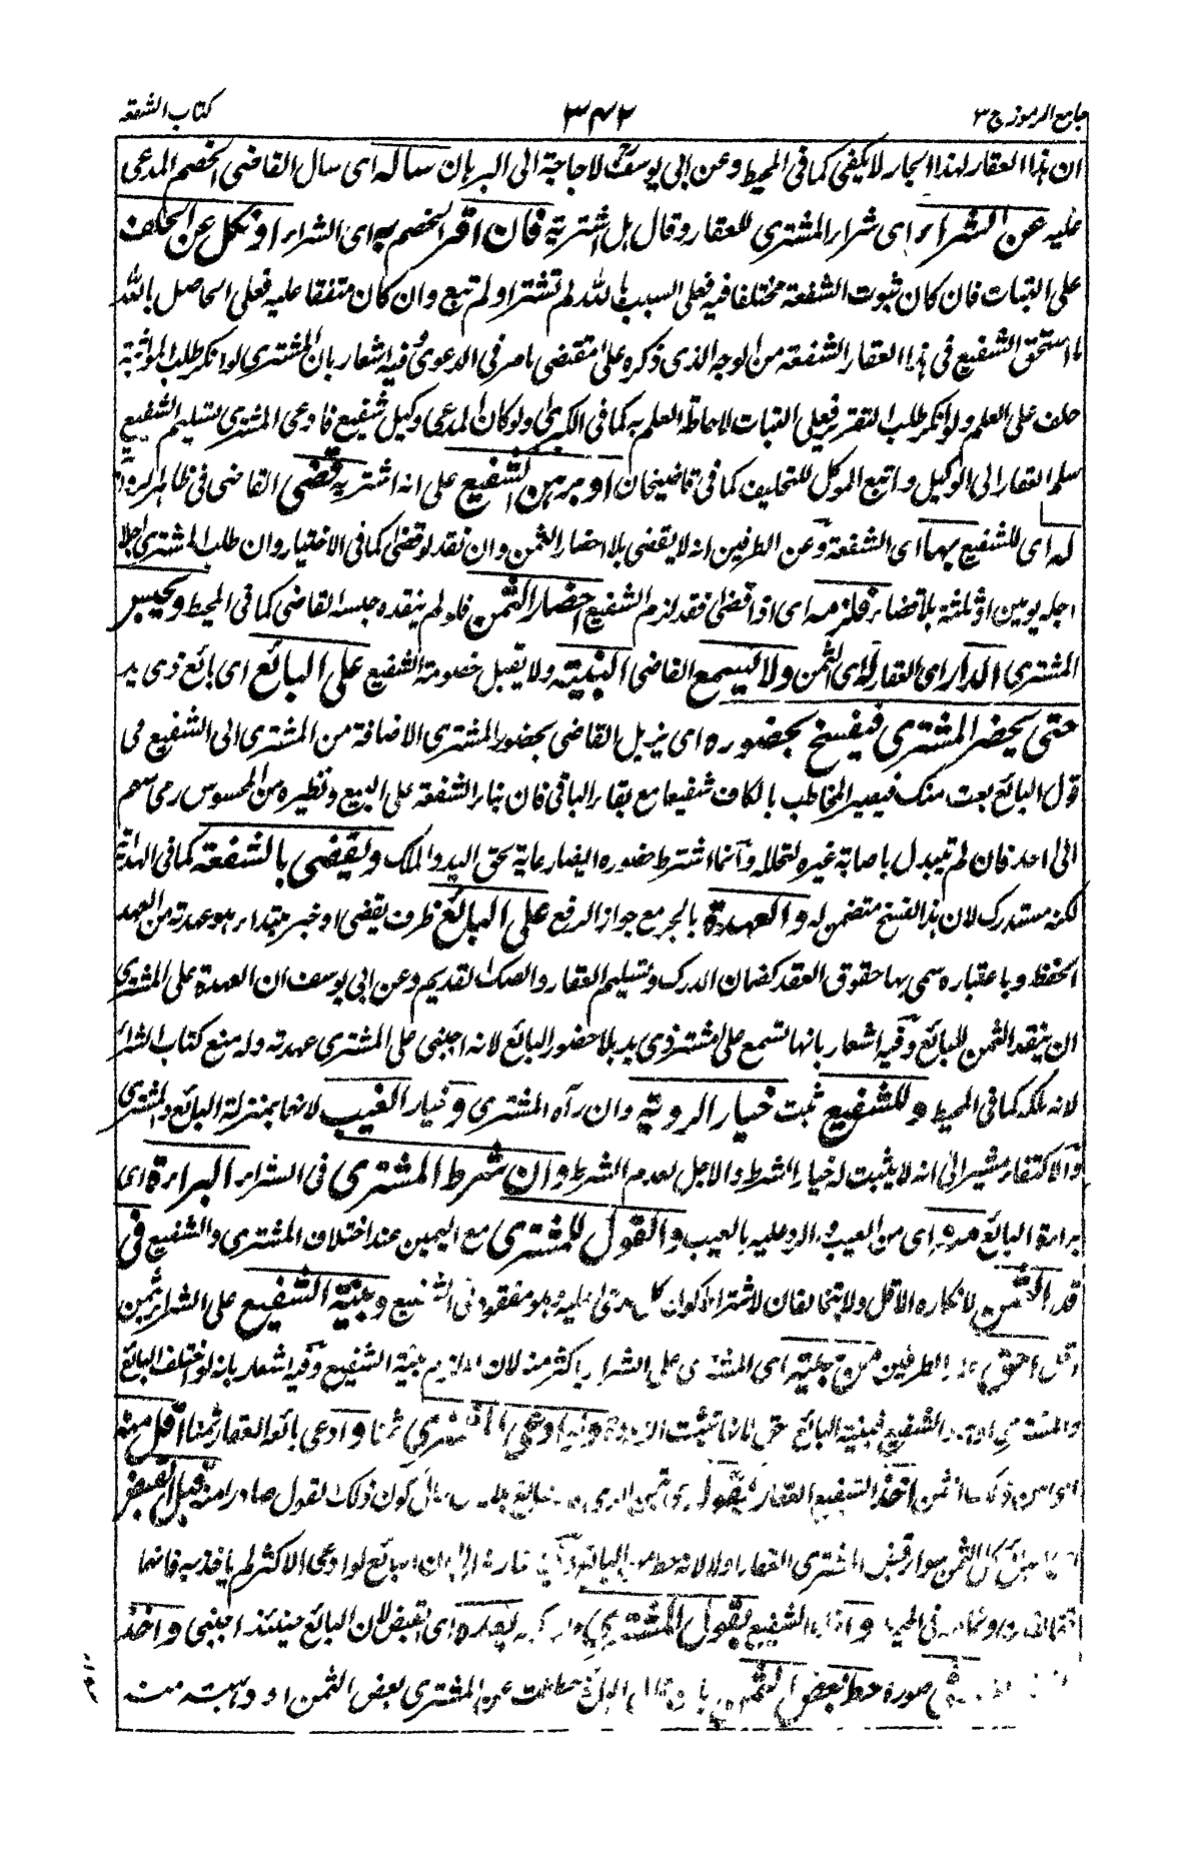 جامع الرموز ج ٣
٣٤٢
كتاب الشفعة
ان هذا العقار لهذا الجار لا يكفى كما فى المحيط وعن ابى يوسف لا حاجة الى البرهان ساله اى سال القاضى الخصم المدعى
عليه عن الشراء اى شراء المشترى للعقار وقال هل اشتريته فان اقر الخصم به اى الشراء او نكل عن الحلف
على البتات فان كان ثبوت الشفعة مختلفا فيه فعلى السبب بالله لم تشتر او لم تبع وان كان متفقا عليه فعلى الحاصل بالله
ما استحق الشفيع فى هذا العقار الشفعة من الوجه الذى ذكره على مقتضى ما مر فى الدعوى وفيه اشعار بان المشترى لو انكر طلب المواثبة
حلف على العلم ولو انكر طلب التقرير فعلى البتات لاحاطة العلم به كما فى الكبرى ولو كان المدعى وكيل شفيع فادعى المشترى تسليم الشفيع
سلم العقار الى الوكيل واتبع الموكل للتحليف كما فى قاضيخان او برهن الشفيع على انه اشتريه قضى القاضى فى ظاهر الرواية
له اى للشفيع بها اى الشفعة وعن الطرفين انه لا يقضى بلا احضار الثمن وان نقد لو قضى كما فى الاختيار وان طلب المشترى اجلا
اجله يومين او ثلثة بلا قضاء فلزمه اى اذا قضى فقد لزم الشفيع احضار الثمن فلو لم ينقده حبسه القاضى كما فى المحيط ويحبس
المشترى الدار اى العقار له اى الثمن ولا يسمع القاضى البينة ولا يقبل خصومة الشفيع على البائع اى بائع ذى يد
حتى يحضر المشترى فيفسخ بحضوره اى يزيل القاضى بحضور المشترى الاضافة من المشترى الى الشفيع فى
قول البائع بعت منك فيصير المخاطب بالكاف شفيعا مع بقاء الباقى فان بناء الشفعة على البيع ونظيره من المحسوس رمى سهم
الى احد فان لم يتبدل باصابة غيره لتخلله وانما اشترط حضوره ايضا رعاية بحق اليد والملك ويقضى بالشفعة كما فى الهداية
لكنه مستدرك لان هذا الفسخ متضمن له والعهدة بالجر مع جواز الرفع على البائع ظرف يقضى او خبر مبتداء هو عهدة من العهد
الحفظ وباعتباره سمى بها حقوق العقد كضمان الدرك وتسليم العقار والصك القديم وعن ابى يوسف ان العهدة على المشترى
ان ينقد الثمن للبائع وفيه اشعار بانها تسمع على مشتر ذى يد بلا حضور البائع لانه اجنبى على المشترى عهدته وله منع كتاب الشراء
لانه ملكه كما فى المحيط وللشفيع ثبت خيار الروية وان رآه المشترى وخيار العيب لانهما بمنزلة البائع والمشترى
والاكتفاء مشير الى انه لا يثبت له خيار الشرط والاجل لعدم الشرط وان شرط المشترى فى الشراء البراءة اى
براءة البائع منه اى من العيب الرد عليه بالعيب والقول للمشترى مع اليمين عند اختلاف المشترى والشفيع فى
قدر الثمن لانكاره الاقل ولا يتحالفان لاشتراط كون كل مدعى عليه وهو مفقود فى الشفيع وبينة الشفيع على الشراء بثمن
اقل احق الطرفين من بينته اى المشترى على الشراء باكثر منه لان بينة الشفيع وفيه اشعار بانه لو اختلف البائع
والمشترى الشفيع فبينة البائع احق لانها تثبت الزيادة ولو ادعى المشترى ثمنا وادعى بائع العقار ثمنا اقل منه
من ذلك الثمن اخذ الشفيع العقار بقوله كون ذلك القول صادرا منه قبل القبض
كل الثمن سواء قبض المشترى العقار او لا لانه حط البائع لو ادعى الاكثر لم ياخذ به فانهما
واخذ الشفيع بقول المشترى بعده اى القبض لان البائع حينئذ اجنبى واخذ
صورة حط بعض الثمن بان قال البائع حططت عن المشترى بعض الثمن او وهبته منه